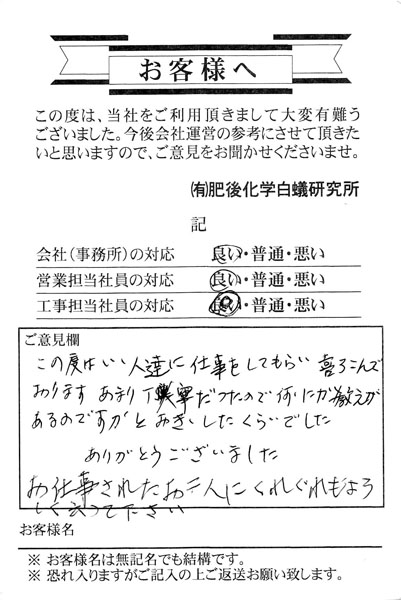 お客様へ
この度は、当社をご利用頂きまして大変有難う
ございました。今後会社運営の参考にさせて頂きた
いと思いますので、ご意見をお聞かせくださいませ。
㈲肥後化学白蟻研究所
記
会社（事務所）の対応 良い・普通・悪い
営業担当社員の対応 良い・普通・悪い
工事担当社員の対応 良い・普通・悪い
ご意見欄
この度はいい人達に仕事をしてもらい 喜ろこんで
おります あまり丁寧だったので何にか教えが
あるのですかとおききしたくらいでした
ありがとうございました
お仕事されたお二人にくれぐれもよろ
しく云って下さい
お客様名
※ お客様名は無記名でも結構です。
※ 恐れ入りますがご記入の上ご返送お願い致します。